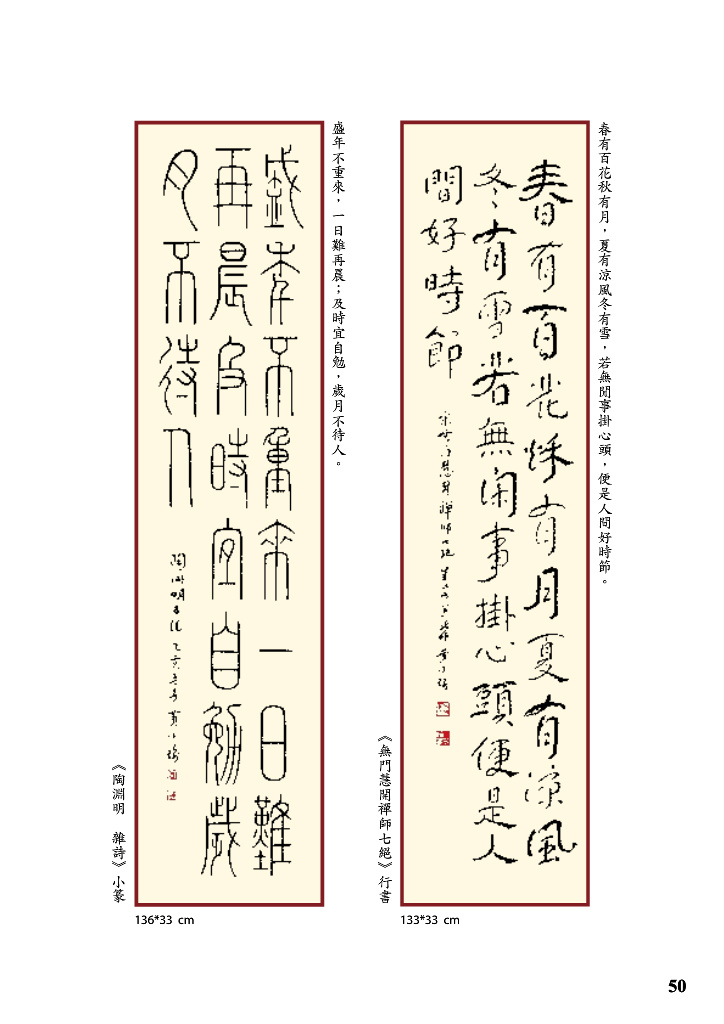 春有百花秋有月，夏有涼風冬有雪，若無閒事掛心頭，便是人間好時節。
春有百花秋有月夏有涼風
冬有雪若無閑事掛心頭便是人
間好時節
《無門慧開禪師七絕》行書
133*33 cm
盛年不重來，一日難再晨；及時宜自勉，歲月不待人。
盛年不重來一日難
再晨及時宜自勉歲
月不待人
《陶淵明　雜詩》小篆
136*33 cm
50